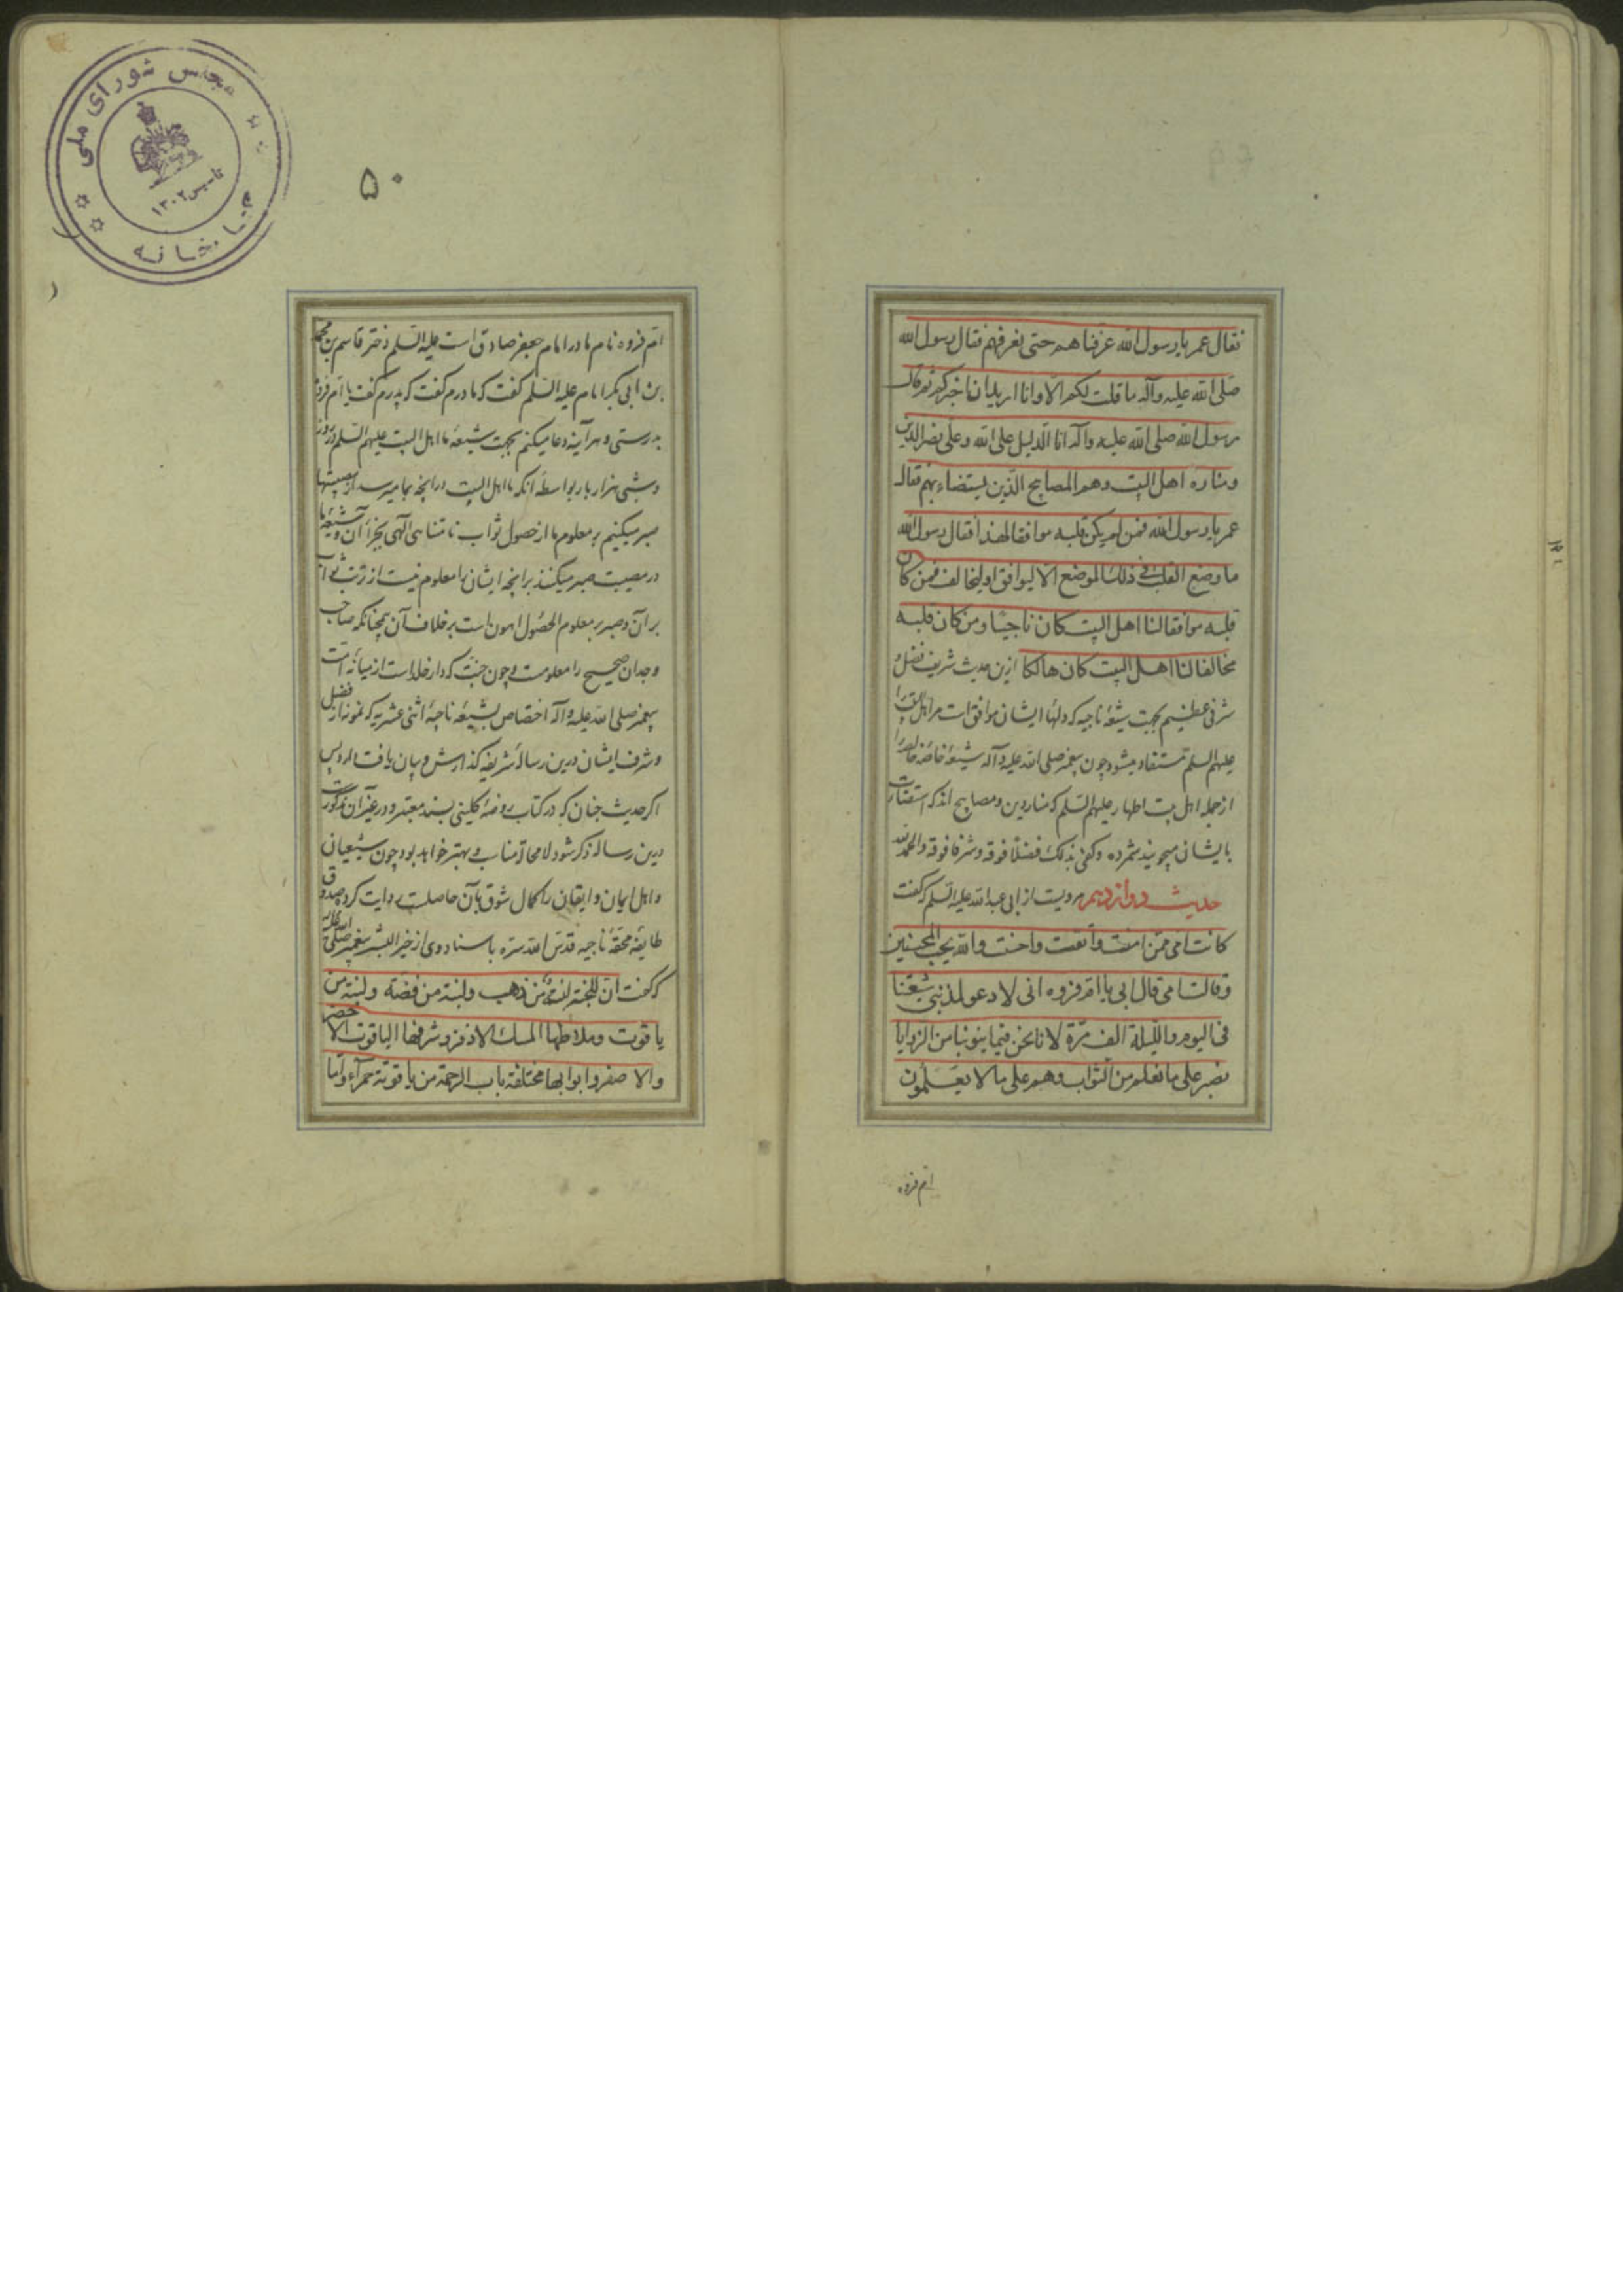 فقال عمر یا رسول الله عرفناهم حتی نعرفهم فقال رسول الله
صلی الله علیه وآله ما قلت لکم الا وانا ارید ان اخبرکم ثم قال
رسول الله صلی الله علیه وآله انا الدلیل علی الله وعلی نصر الدین
ومناره اهل البیت وهم المصابیح الذین یستضاء بهم فقال
عمر یا رسول الله فمن لم یکن قلبه موافقا لهذا فقال رسول الله
ما وضع القلب فی ذلک الموضع الا لیوافق او لیخالف فمن کان
قلبه موافقا لنا اهل البیت کان ناجیا ومن کان قلبه
مخالفا لنا اهل البیت کان هالکا ازین حدیث شریف فضل و
شرفی عظیم بجهت شیعهٔ ناجیه که دلهاء ایشان موافق است مر اهل البیت را
علیهم السلم مستفاد میشود چون پیغمبر صلی الله علیه وآله شیعهٔ خاصهٔ خالصه را
از جمله اهل بیت اطهار علیهم السلم که منار دین ومصابیح اند که استضائت
بایشان میجویند شمرده وکفی بذلک فضلا فوقه وشرفا فوقه والحمد لله
حدیث دوازدهم مرویست از ابی عبدالله علیه السلم که گفت
کانت امی ممن امنت واتقت واحسنت والله یحب المحسنین
وقالت امی قال ابی یا ام فروه انی لادعو لمذنبی شیعتنا
فی الیوم واللیلة الف مرة لانا نحن فیما ینوبنا من الرزایا
نصبر علی ما نعلم من الثواب وهم علی ما لا یعلمون
ام فروه
۵۰
مجلس شورای ملی
کتابخانه
تاسیس ۱۳۰۲
ام فروه نام مادر امام جعفر صادق است علیه السلم دختر قاسم بن محمد
بن ابی بکر امام علیه السلم گفت که مادرم گفت که پدرم گفت یا ام فروه
بدرستی وهرآینه دعا میکنم بجهت شیعهٔ ما اهل البیت علیهم السلم در روز
وشبی هزار بار بواسطهٔ آنکه ما اهل البیت در آنچه بما میرسد از مصیبتها
صبر میکنیم بر معلوم ما از حصول ثواب نامتناهی الهی بجزاء آن وشیعهٔ ما
در مصیبت صبر میکنند بر آنچه ایشان را معلوم نیست از ترتب ثواب
بر آن وصبر بر معلوم الحصول اهون است بر خلاف آن همچنانکه صاحب
وجدان صحیح را معلومست وچون جنت که دار خلد است از میانهٔ امت
پیغمبر صلی الله علیه وآله اختصاص بشیعهٔ ناجیهٔ اثنی عشریه که نمودار فضل
وشرف ایشان درین رسالهٔ شریفه گذارش وبیان یافت دارد پس
اگر حدیث جنان که در کتاب روضهٔ کلینی بسند معتبر ودر غیر آن مذکورست
درین رساله ذکر شود لا محاله مناسب وبهتر خواهد بود چون شیعیان
واهل ایمان وایقان را کمال شوق بآن حاصلست روایت کرده صدوق
طایفهٔ محقهٔ ناجیه قدس الله سره باسناد وی از خیر البشر پیغمبر صلی الله علیه وآله
که گفت ان للجنة لبنة من ذهب ولبنة من فضة ولبنة من
یاقوت وملاطها المسک الاذفر وشرفها الیاقوت الاخضر
والاصفر وابوابها مختلفة باب الرحمة من یاقوتة حمراء واما